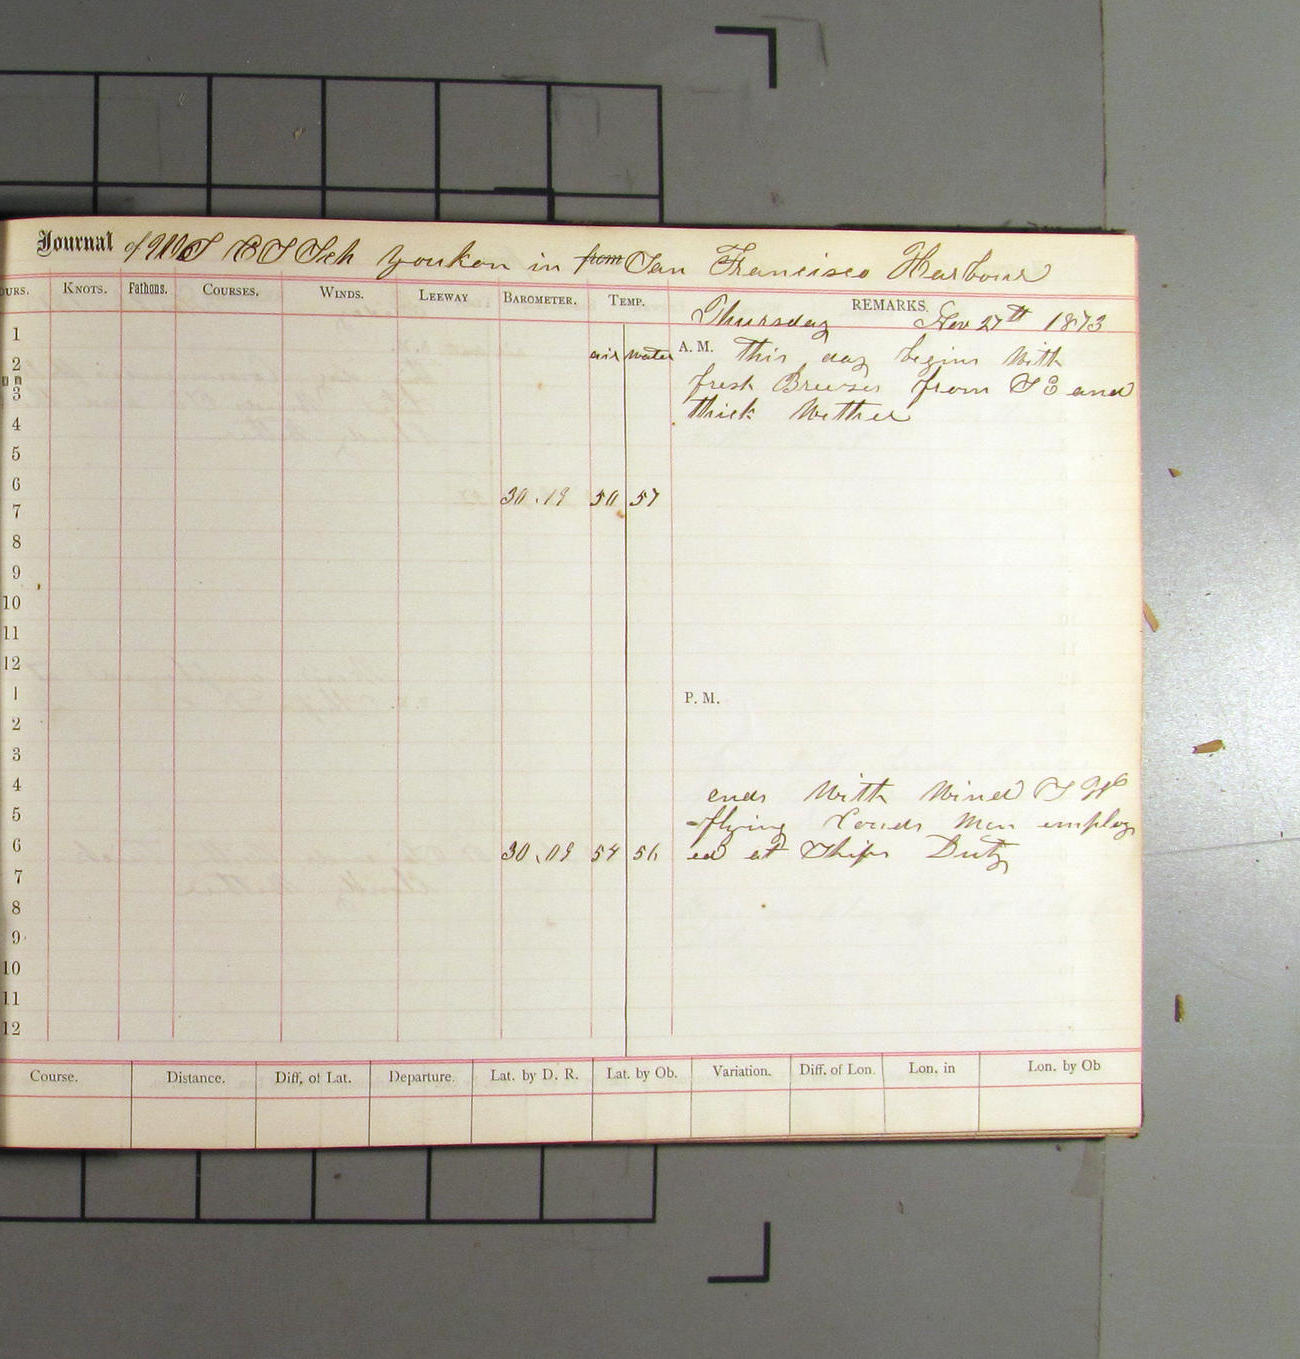 Journal of U S C S Sch Youkon in from San Francisco Harbour
OURS. KNOTS. Fathoms. COURSES. WINDS. LEEWAY BAROMETER. TEMP. REMARKS.
Thursday Nov 27th 1873
1
air water A. M. This day begins With
2
fresh Breeses from S E and
3
thick Wether
4
5
6
30.19 50 57
7
8
9
10
11
12
1 P. M.
2
3
4 ends With Wind S W
5 flying Clouds Men employ
6 30.09 54 56 ed at Ships Duty
7
8
9
10
11
12
Course. Distance. Diff. of Lat. Departure. Lat. by D. R. Lat. by Ob. Variation. Diff. of Lon. Lon. in Lon. by Ob